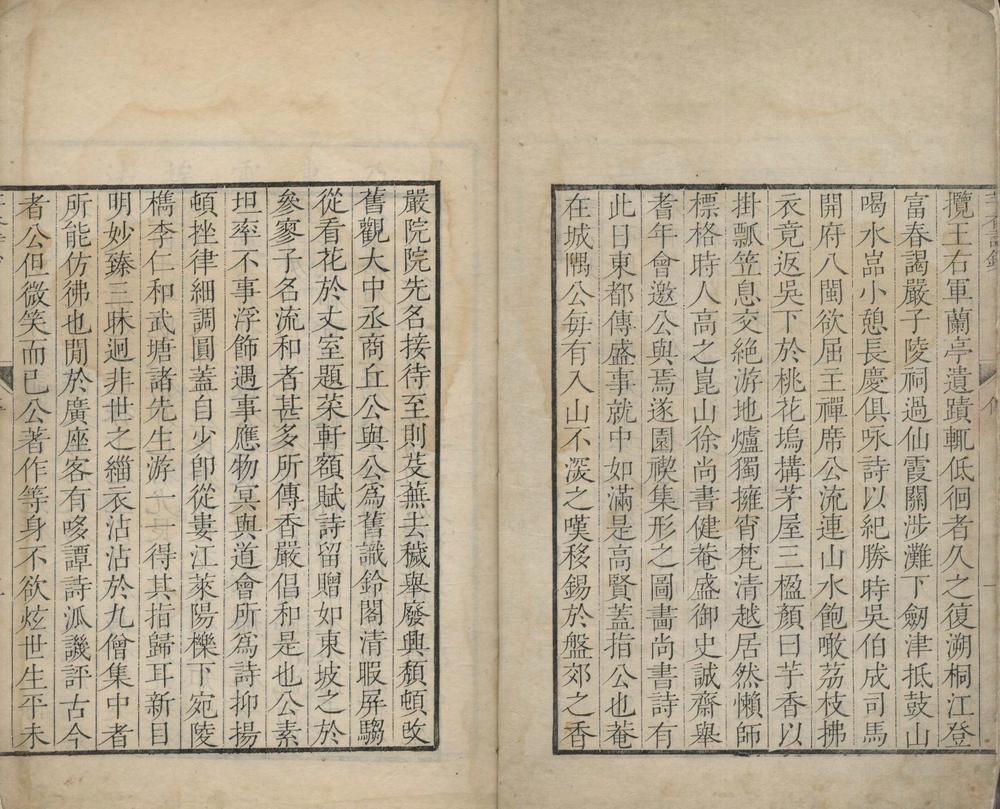 攬王右軍蘭亭遺蹟輒低徊者久之復溯桐江登
富春謁嚴子陵祠過仙霞關涉灘下劒津抵鼓山
喝水嵓小憩長慶俱咏詩以紀勝時吳伯成司馬
開府八閩欲屈主禪席公流連山水飽噉荔枝拂
衣竟返吳下於桃花塢搆茅屋三楹顏曰芋香以
掛瓢笠息交絶游地爐獨擁宵梵清越居然懶師
標格時人高之崑山徐尚書健菴盛御史誠齋舉
耆年會邀公與焉遂園禊集形之圖畵尚書詩有
此日東都傳盛事就中如滿是高賢蓋指公也菴
在城隅公每有入山不深之嘆移錫於盤郊之香
嚴院院先名接待至則芟蕪去穢舉廢興頽頓改
舊觀大中丞商丘公與公爲舊識鈴閣清暇屏騶
從看花於丈室題菜軒額賦詩留贈如東坡之於
參寥子名流和者甚多所傳香嚴倡和是也公素
坦率不事浮飾遇事應物冥與道會所爲詩抑揚
頓挫律細調圓蓋自少卽從婁江萊陽櫟下宛陵
檇李仁和武塘諸先生游一一得其指歸耳新目
明妙臻三昧迥非世之緇衣沾沾於九僧集中者
所能仿彿也閒於廣座客有哆譚詩派譏評古今
者公但微笑而已公著作等身不欲炫世生平未